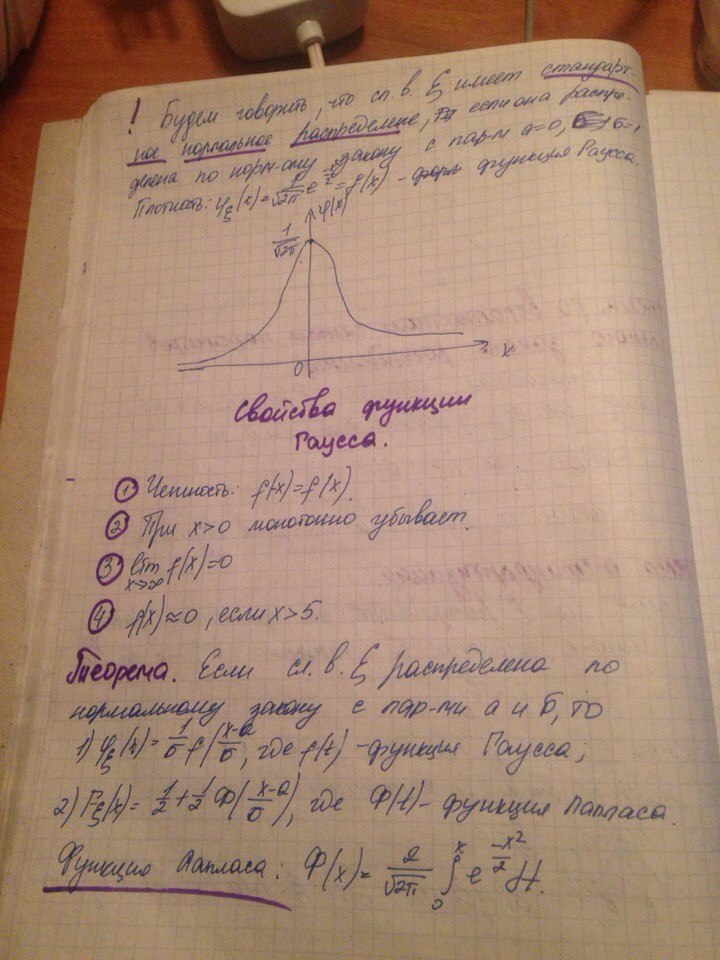 ! Будем говорить, что сл. в. ξ имеет стандарт-
ное нормальное распределение, если она распре-
делена по норм-ому закону с пар-ми a=0, σ=1
Плотность: φ_ξ(x) = 1/√2π e^(-x²/2) = f(x) - функция Гаусса.
φ(x)
1/√2π
0
x
Свойства функции
Гаусса.
① Четность: f(-x)=f(x).
② При x>0 монотонно убывает.
③ lim x→∞ f(x)=0
④ f(x)≈0, если x>5.
Теорема. Если сл. в. ξ распределена по
нормальному закону с пар-ми a и σ, то
1) φ_ξ(x) = 1/σ f((x-a)/σ, где f(t) - функция Гаусса;
2) F_ξ(x) = 1/2 + 1/2 Ф((x-a)/σ), где Ф(t) - функция Лапласа.
Функция Лапласа: Ф(x) = 2/√2π ∫₀ˣ e^(-x²/2) dt.